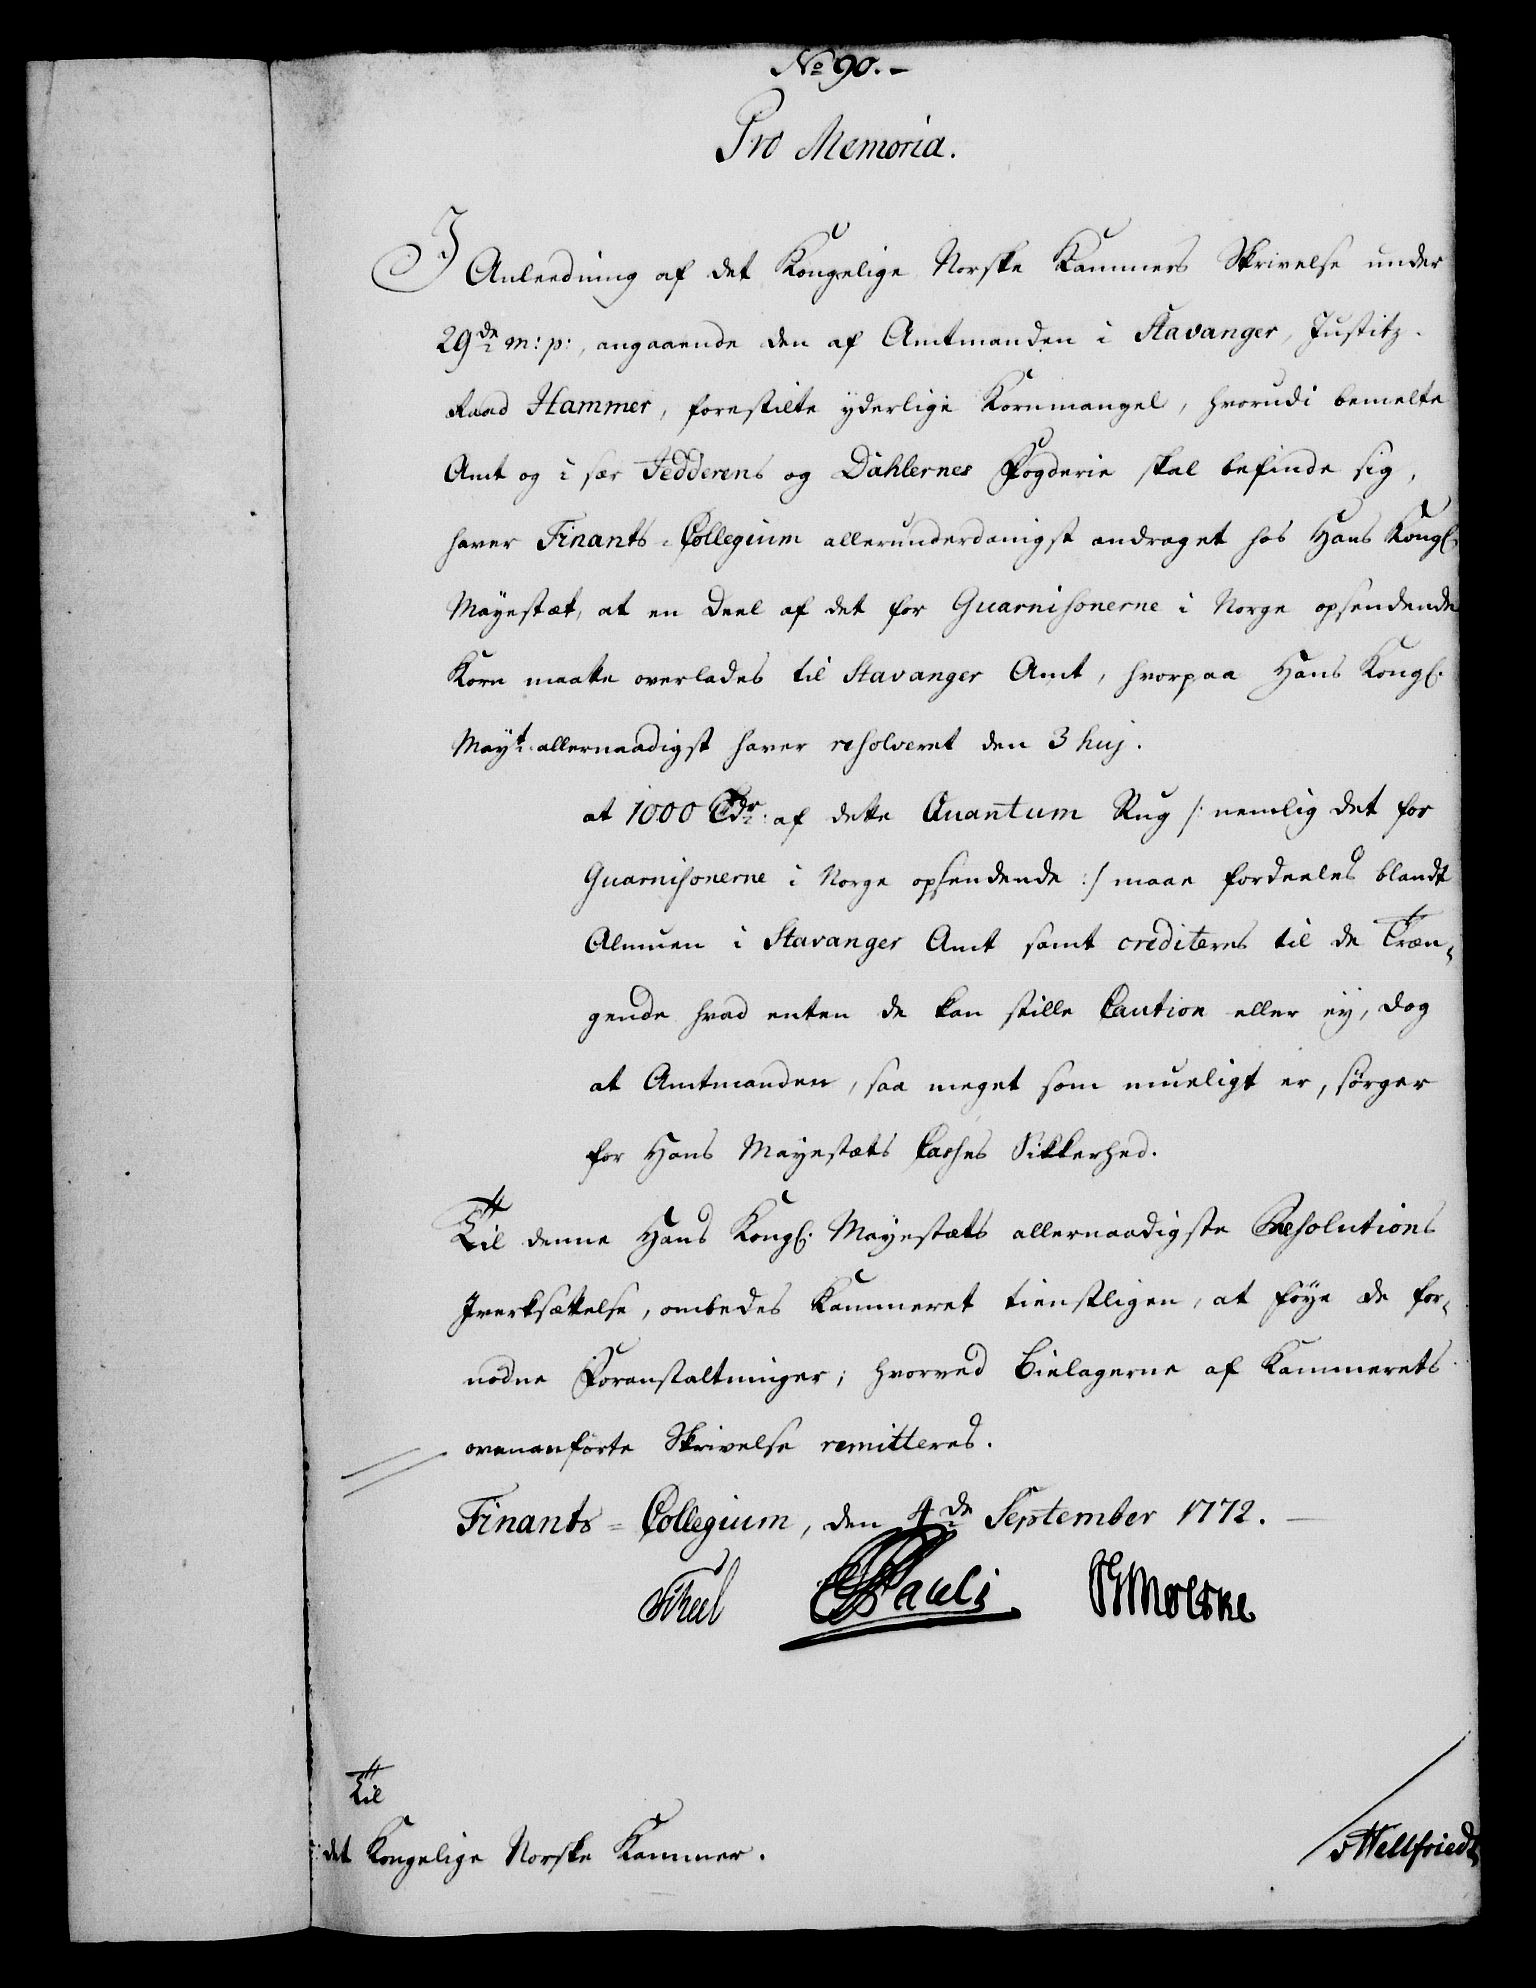 No 90.-
Pro Memoria.
I Anleedning af det Kongelige Norske Kammers Skrivelse under
29de m: p:, angaaende den af Amtmanden i Stavanger, Justitz-
Raad Hammer, forestilte yderlige Kornmangel, hvorudi bemelte
Amt og i sær Jedderens og Dahlernes Fogderie skal befinde sig,
haver Finants-Collegium allerunderdanigst andraget hos Hans Kongl.
Mayestæt, at en Deel af det for Guarnisonerne i Norge opsendende
Korn maatte overlades til Stavanger Amt, hvorpaa Hans Kongl.
Mayt. allernaadigst haver resolveret den 3 huj.
at 1000 Tdr. af dette Quantum Rug /: nemlig det for
Guarnisonerne i Norge opsendende :/ maae fordeeles blandt
Almuen i Stavanger Amt samt crediteres til de Træn-
gende hvad enten de kan stille Caution eller ey, dog
at Amtmanden, saa meget som mueligt er, sørger
for Hans Mayestæts Casses Sikkerhed.
Til denne Hans Kongl. Mayestæts allernaadigste Resolutions
Iverksættelse, ombedes Kammeret tienstligen, at føye de for-
nødne Foranstaltninger; hvorved Bielagerne af Kammerets
ovenanførte Skrivelse remitteres.
Finants-Collegium, den 4de September 1772.
Scheel Pauli Moltke
Til
det Kongelige Norske Kammer.
Wellfriedt